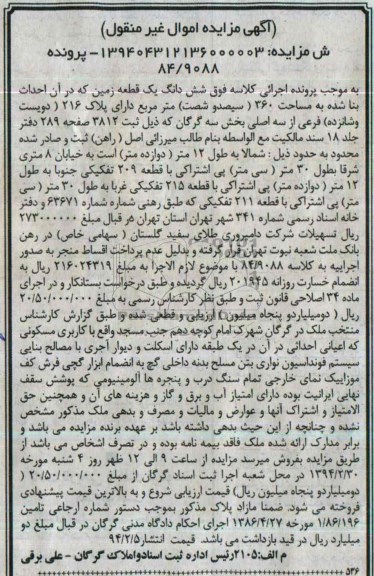 (آگهی مزایده اموال غیر منقول)
ش مزایده: ۱۳۹۴۰۴۳۱۲۱۳۶۰۰۰۰۰۳- پرونده
۸۴/۹۰۸۸
به موجب پرونده اجرائی کلاسه فوق شش دانگ یک قطعه زمین که در آن احداث
بنا شده به مساحت ۳۶۰ ( سیصدو شصت) متر مربع دارای پلاک ۲۱۶ ( دویست
وشانزده) فرعی از سه اصلی بخش سه گرگان که ذیل ثبت ۳۸۱۲ صفحه ۲۸۹ دفتر
جلد ۱۸ سند مالکیت مع الواسطه بنام طالب میرزائی اصل ( راهن) ثبت و صادر شده
محدود به حدود ذیل : شمالا به طول ۱۲ متر ( دوازده متر) است به خیابان ۸ متری
شرقا بطول ۳۰ متر ( سی متر) پی اشتراکی با قطعه ۲۰۹ تفکیکی جنوبا به طول
۱۲ متر ( دوازده متر) پی اشتراکی با قطعه ۲۱۵ تفکیکی غربا به طول ۳۰ متر ( سی
متر) پی اشتراکی با قطعه ۲۱۱ تفکیکی که طبق رهنی شماره شماره ۶۳۶۷۱ و دفتر
خانه اسناد رسمی شماره ۳۴۱ شهر تهران استان تهران در قبال مبلغ ۲۷۳۰۰۰۰۰۰
ریال تسهیلات شرکت دامپروری طلای سفید گلستان ( سهامی خاص) در رهن
بانک ملت شعبه نبوت تهران قرار گرفته و بدلیل عدم پرداخت اقساط منجر به صدور
اجراییه به کلاسه ۸۴/۹۰۸۸ با موضوع لازم الاجرا به مبلغ ۲۱۶۰۲۴۳۱۹ ریال به
انضمام خسارت روزانه ۲۰۱۹۴۵ ریال گردیده و طبق درخواست بستانکار و در اجرای
ماده ۳۴ اصلاحی قانون ثبت و طبق نظر کارشناس رسمی به مبلغ ۲۰/۵۰/۰۰۰/۰۰۰
ریال ( دومیلیاردو پنجاه میلیون ) ارزیابی و قطعی شده و طبق گزارش کارشناس
منتخب ملک در گرگان شهرک امام کوچه دهم جنب مسجد واقع با کاربری مسکونی
که اعیانی احداثی در آن در یک طبقه دارای اسکلت و دیوار آجری با مصالح بنایی
سیستم فونداسیون نواری بتن مسلح بدنه داخلی گچ به انضمام ابزار گچی فرش کف
موزاییک نمای خارجی تمام سنگ درب و پنجره ها آلومینیومی که پوشش سقف
نهایی ایرانیت بوده دارای امتیاز آب و برق و گاز و هزینه های آن و همچنین حق
الامتیاز و اشتراک آنها و عوارض و مالیات و مصرف و بدهی ملک مذکور مشخص
نشده و چنانچه از این حیث بدهی داشته باشد بر عهده برنده مزایده می باشد و
برابر مدارک ارائه شده ملک فاقد بیمه نامه بوده و در تصرف اشخاص می باشد از
طریق مزایده بفروش میرسد مزایده از ساعت ۹ الی ۱۲ ظهر روز ۴ شنبه مورخه
۱۳۹۴/۲/۳۰ در محل شعبه اجرا ثبت اسناد گرگان از مبلغ ۲۰/۵۰/۰۰۰/۰۰۰ (
دومیلیاردو پنجاه میلیون ریال) قیمت ارزیابی شروع و به بالاترین قیمت پیشنهادی
فروخته می شود. ضمنا مازاد پلاک مذکور بموجب دستور شماره ارجاعی تامین
۱/۸۶/۱۹۶ مورخه ۱۳۸۶/۴/۲۷ اجرای احکام دادگاه مدنی گرگان در قبال مبلغ دو
میلیارد ریال در قید بازداشت می باشد. قیمت انتشار۹۴/۲/۵
م الف:۲۱۰۵رئیس اداره ثبت اسنادواملاک گرگان - علی برقی
۵۳۶